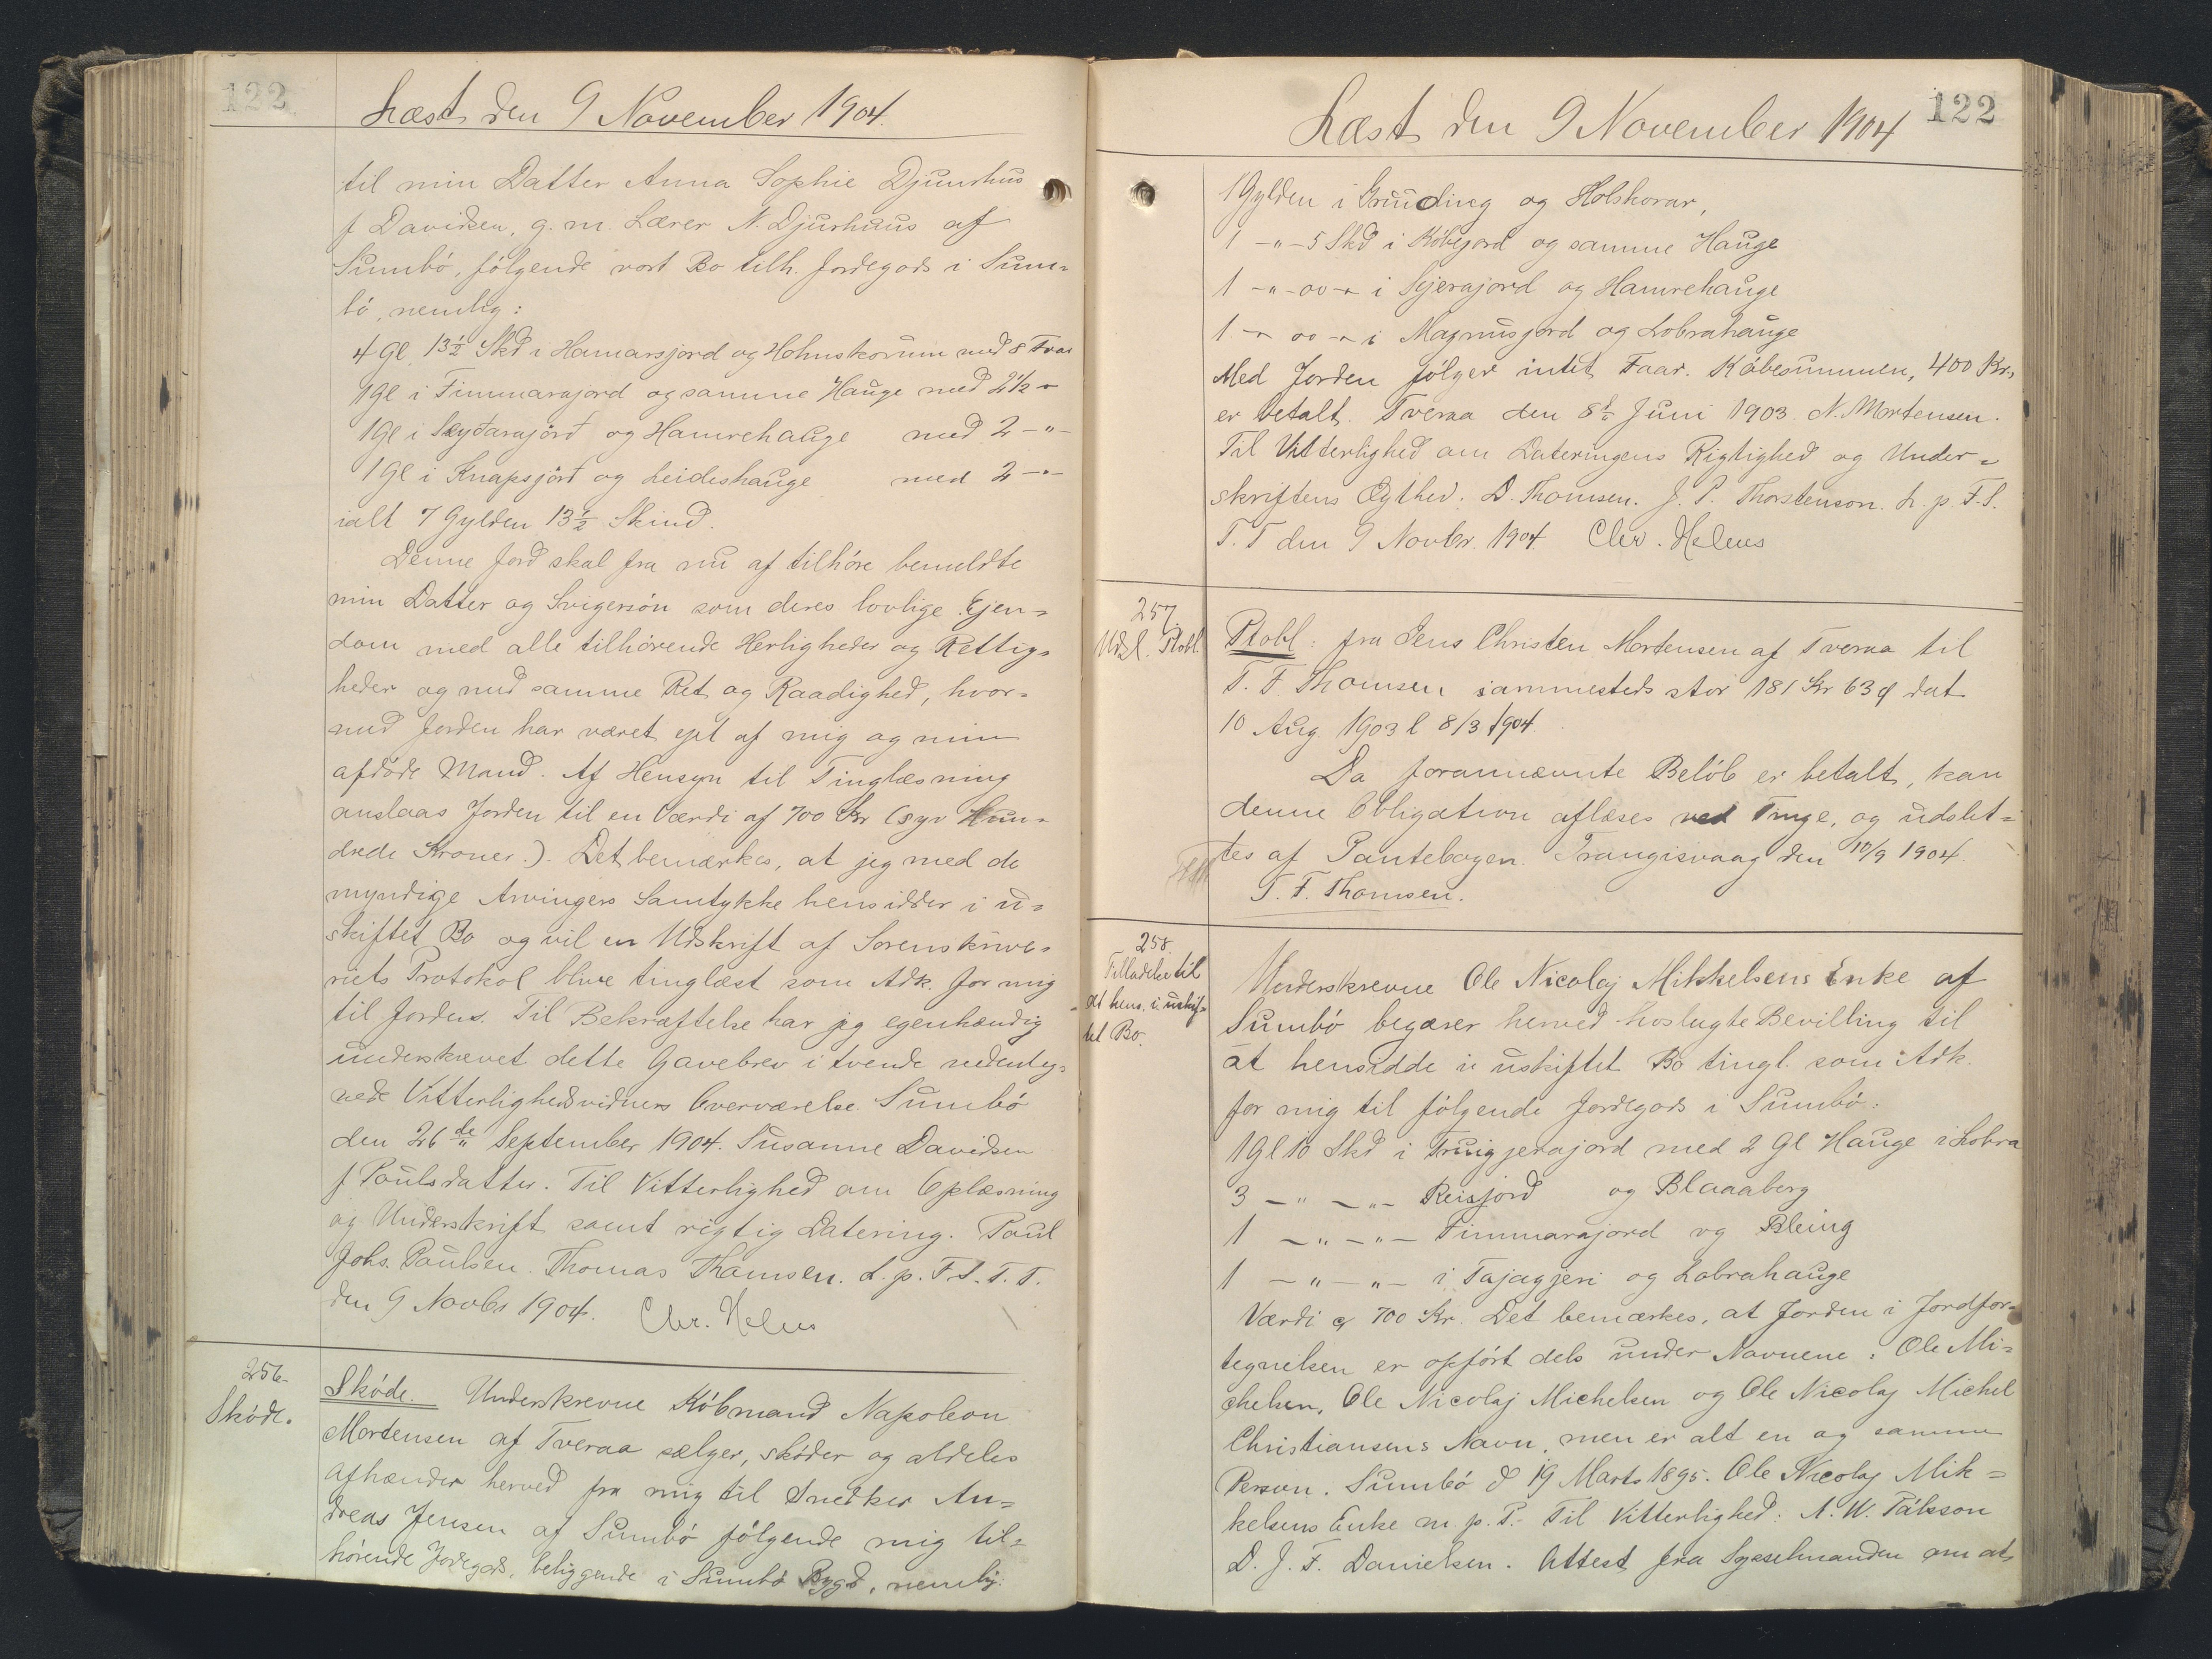 122
Læst den 9 November 1904.
til min Datter Anna Sophie Djurhus
f Davidsen, g. m. Lærer N. Djurhuus af
Sumbó, følgende vort Bo tilh. Jordegods i Sum=
bó, nemlig:
4 Gl. 13½ Skd i Hamarsjord og Hohnskorum med 8 Faar
1 Gl i Timmarajord og samme Hauge med 2½ -"-
1 Gl i Skydarajörd og Hamrehauge med 2 -"-
1 Gl i Knapsjörd og Leideshauge med 2 -"-
ialt 7 Gylden 13½ Skind.
Denne Jord skal fra nu af tilhóre bemeldte
min Datter og Svigersón som deres lovlige Ejen=
dom med alle tilhórende Herligheder og Rettig=
heder og med samme Ret og Raadighed, hvor=
med Jorden har været ejet af mig og min
afdóde Mand. Af Hensyn til Tinglæsning
anslaas Jorden til en Værdi af 700 Kr (syv Hun=
drede Kroner.). Det bemærkes, at jeg med de
myndige Arvingers Samtykke hensidder i u=
skiftet Bo og vil en Udskrift af Sorenskrive=
riets Protokol blive tinglæst som Adk. for mig
til Jorden. Til Bekræftelse har jeg egenhændig
underskrevet dette Gavebrev i tvende undenteg=
nede Vitterlighedsvidners Overværelse. Sumbó
den 26de September 1904. Susanne Davidsen
f Poulsdatter. Til Vitterlighed om Oplæsning
og Underskrift samt rigtig Datering. Poul
Johs. Poulsen. Thomas Thomsen. L. p. F. S. T. T.
den 9 Novbr 1904. Chr. Helms
256.
Skóde.
Skóde. Underskrevne Kóbmand Napoleon
Mortensen af Tveraa sælger, skóder og aldeles
afhænder herved fra mig til Snedker An=
dreas Jensen af Sumbó fólgende mig til=
hórende Jordegods, beliggende i Sumbó Bygd, nemlig.
122
Læst den 9 November 1904
1 Gylden i Gruding og Holshorar,
1 -"- 5 Skd i Kóbejord og samme Hauge
1 -"- oo -"- i Sjerajord og Hamrehauge
1 -"- oo -"- i Magnusjord og Lobrahauge
Med Jorden fólger intet Faar. Kóbesummen, 400 Kr,
er betalt. Tveraa den 8de Juni 1903. N. Mortensen.
Til Vitterlighed om Dateringens Rigtighed og Under=
skriftens Ægthed. D. Thomsen. J. P. Thorstenson. L. p. F. S.
T. T den 9 Novbr. 1904. Chr. Helms
257.
Udsl. Ptobl.
Ptobl: fra Jens Christen Mortensen af Tveraa til
T. F. Thomsen sammesteds stor 181 Kr 63 ø dat
10 Aug. 1903 l 8/3 1904.
Da forannævnte Belób er betalt, kan
denne Obligation aflæses ved Tinge, og udslet=
tes af Pantebogen. Trangisvaag den 10/9 1904.
T. F. Thomsen.
258.
Tilladelse til
at hens. i uskif=
tet Bo.
Underskrevne Ole Nicolaj Mikkelsens Enke af
Sumbó begærer herved hoslagte Bevilling til
at hensidde i uskiftet Bo tingl. som Adk.
for mig til fólgende Jordegods i Sumbó:
1 Gl 10 Skd i Truigjerajord med 2 Gl Hauge i Lobra
3 -"- -"- Reisjord og Blaaaberg
1 -"- -"- Timmarajord og Bleing
1 -"- -"- i Tajagjeri og Lobrahauge
Værdi c 700 Kr. Det bemærkes, at Jorden i Jordfor=
tegnelsen er opfórt dels under Navnene: Ole Mi=
chelsen, Ole Nicolaj Michelsen og Ole Nicolaj Michel
Christiansens Navn, men er alt en og samme
Person. Sumbó d 19 Marts 1895. Ole Nicolaj Mik=
kelsens Enke m. p. P. Til Vitterlighed: A. W. Pálsson
D. J. F. Danielsen. Attest fra Sysselmanden om at